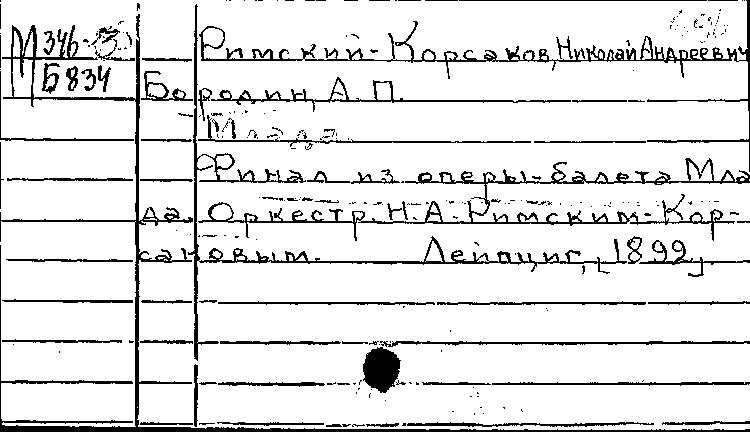 М 346-3
Б 834
Римский-Корсаков, Николай Андреевич
Бородин, А. П.
Млада.
Финал из оперы-балета Мла
да. Оркестр. Н. А. Римским-Кор-
саковым. Лейпциг, [1892].